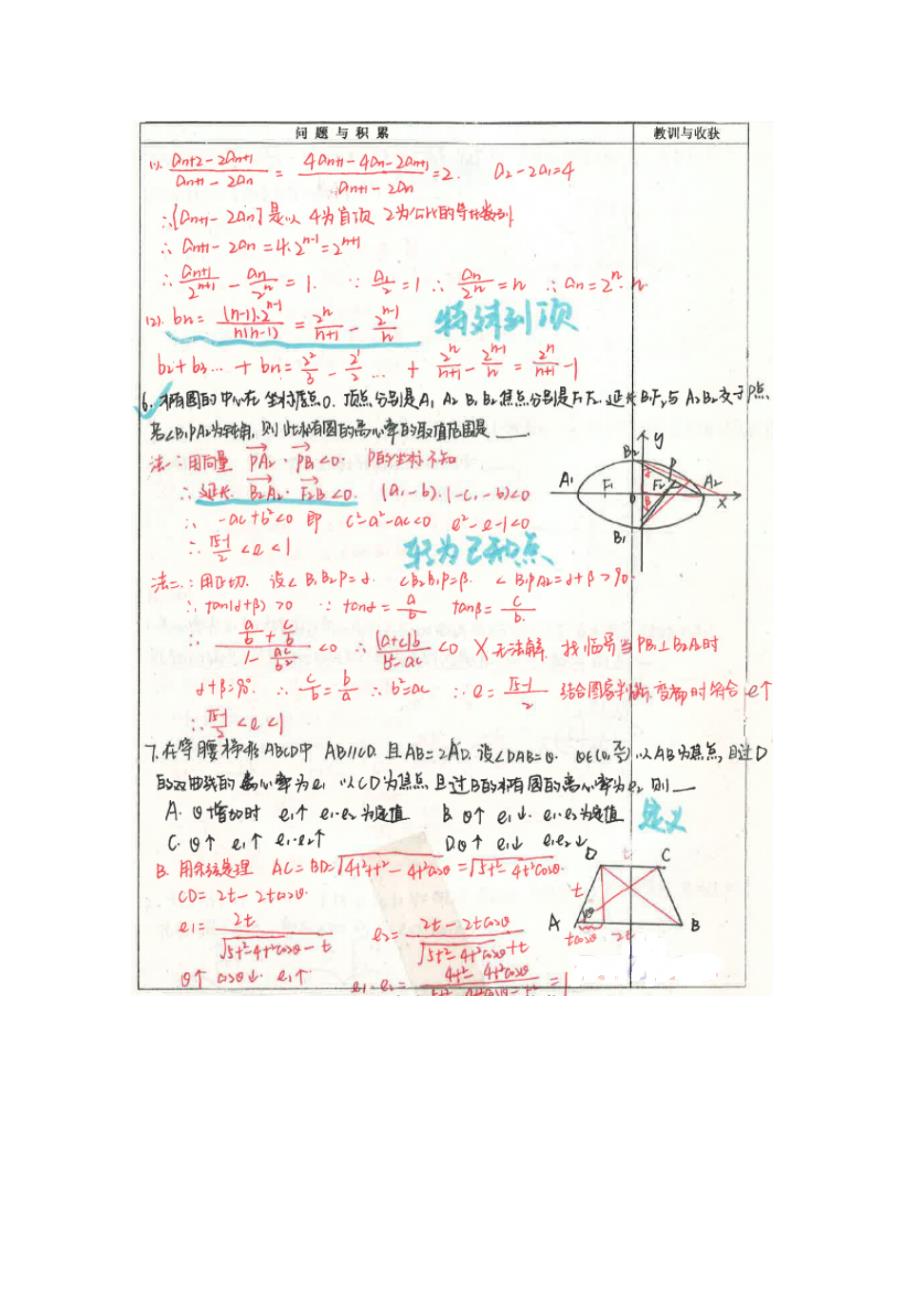 问题与积累 教训与收获
(1). (an+2-2an+1)/(an+1-2an) = (4an+1-4an-2an+1)/(an+1-2an) =2. a2-2a1=4
∴{an+1-2an}是以4为首项 2为公比的等比数列
∴ an+1-2an=4·2^(n-1)=2^(n+1)
∴ an+1/2^(n+1) - an/2^n = 1. ∵ a1/2=1 ∴ an/2^n=n ∴an=2^n·n
(2). bn= (n-1)·2^(n-1)/n(n+1) = 2^n/(n+1) - 2^(n-1)/n 特殊到项
b2+b3…+bn= 2^2/3 - 2^1/2 … + 2^n/(n+1) - 2^(n-1)/n = 2^n/(n+1) -1
6. 椭圆的中心在坐标原点O. 顶点分别是A1 A2 B1 B2 焦点分别是F1 F2. 延长B1F2与A2B2交于P点.
若∠B1PA2为钝角, 则此椭圆的离心率的取值范围是___.
法一:用向量 PA2·PB1<0. P的坐标不知
∴延长. B2A2·F2B1<0. (a,-b)·(-c,-b)<0
∴ -ac+b²<0 即 c²-a²-ac<0 e²-e-1<0
∴ (√5-1)/2 <e<1 转为已知点
法二:用正切. 设∠B1B2P=α. ∠B2B1P=β. ∠B1PA2=α+β>90
∴tan(α+β)>0 ∵tanα= a/b tanβ= c/b.
∴ (a/b + c/b)/(1- ac/b²) <0 ∴ (a+c)b/(b²-ac) <0 X 无法解. 找临界当PB1⊥B2A2时
α+β=90°. ∴ c/b = b/a ∴b²=ac ∴e= (√5-1)/2 结合图象判断,变扁时符合 e↑
∴ (√5-1)/2 <e<1
B2 y P α A1 F1 O F2 A2 X β B1
7.在等腰梯形ABCD中 AB//CD. 且AB=2AD. 设∠DAB=θ. θ∈(0,π/2). 以AB为焦点, 且过D
的双曲线的离心率为e1 以CD为焦点且过B的椭圆的离心率为e2 则___
A. θ增加时 e1↑ e1·e2为定值 B. θ↑ e1↓. e1·e2为定值 定义
C. θ↑ e1↑ e1·e2↑ D.θ↑ e1↓ e1e2↓
B. 用余弦定理 AC=BD=√(4t²+t²-4t²cosθ) =√(5t²-4t²cosθ).
CD=2t-2tcosθ.
e1= 2t/(√(5t²-4t²cosθ)-t) e2= (2t-2tcosθ)/(√(5t²-4t²cosθ)+t)
D t C t θ A tcosθ 2t B
θ↑ cosθ↓ e1↑ e1·e2= (4t²-4t²cosθ)/(5t²-4t²cosθ-t²) =1